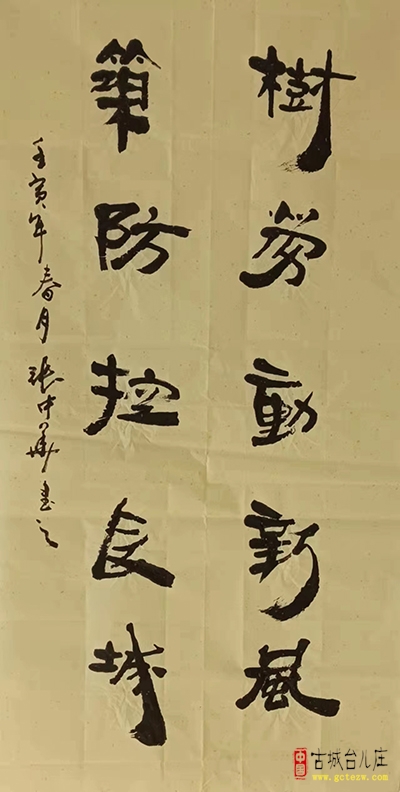 樹勞動新風
築防控長城
壬寅年春月張中華書之
中国
古城台儿庄
www.gctezw.com